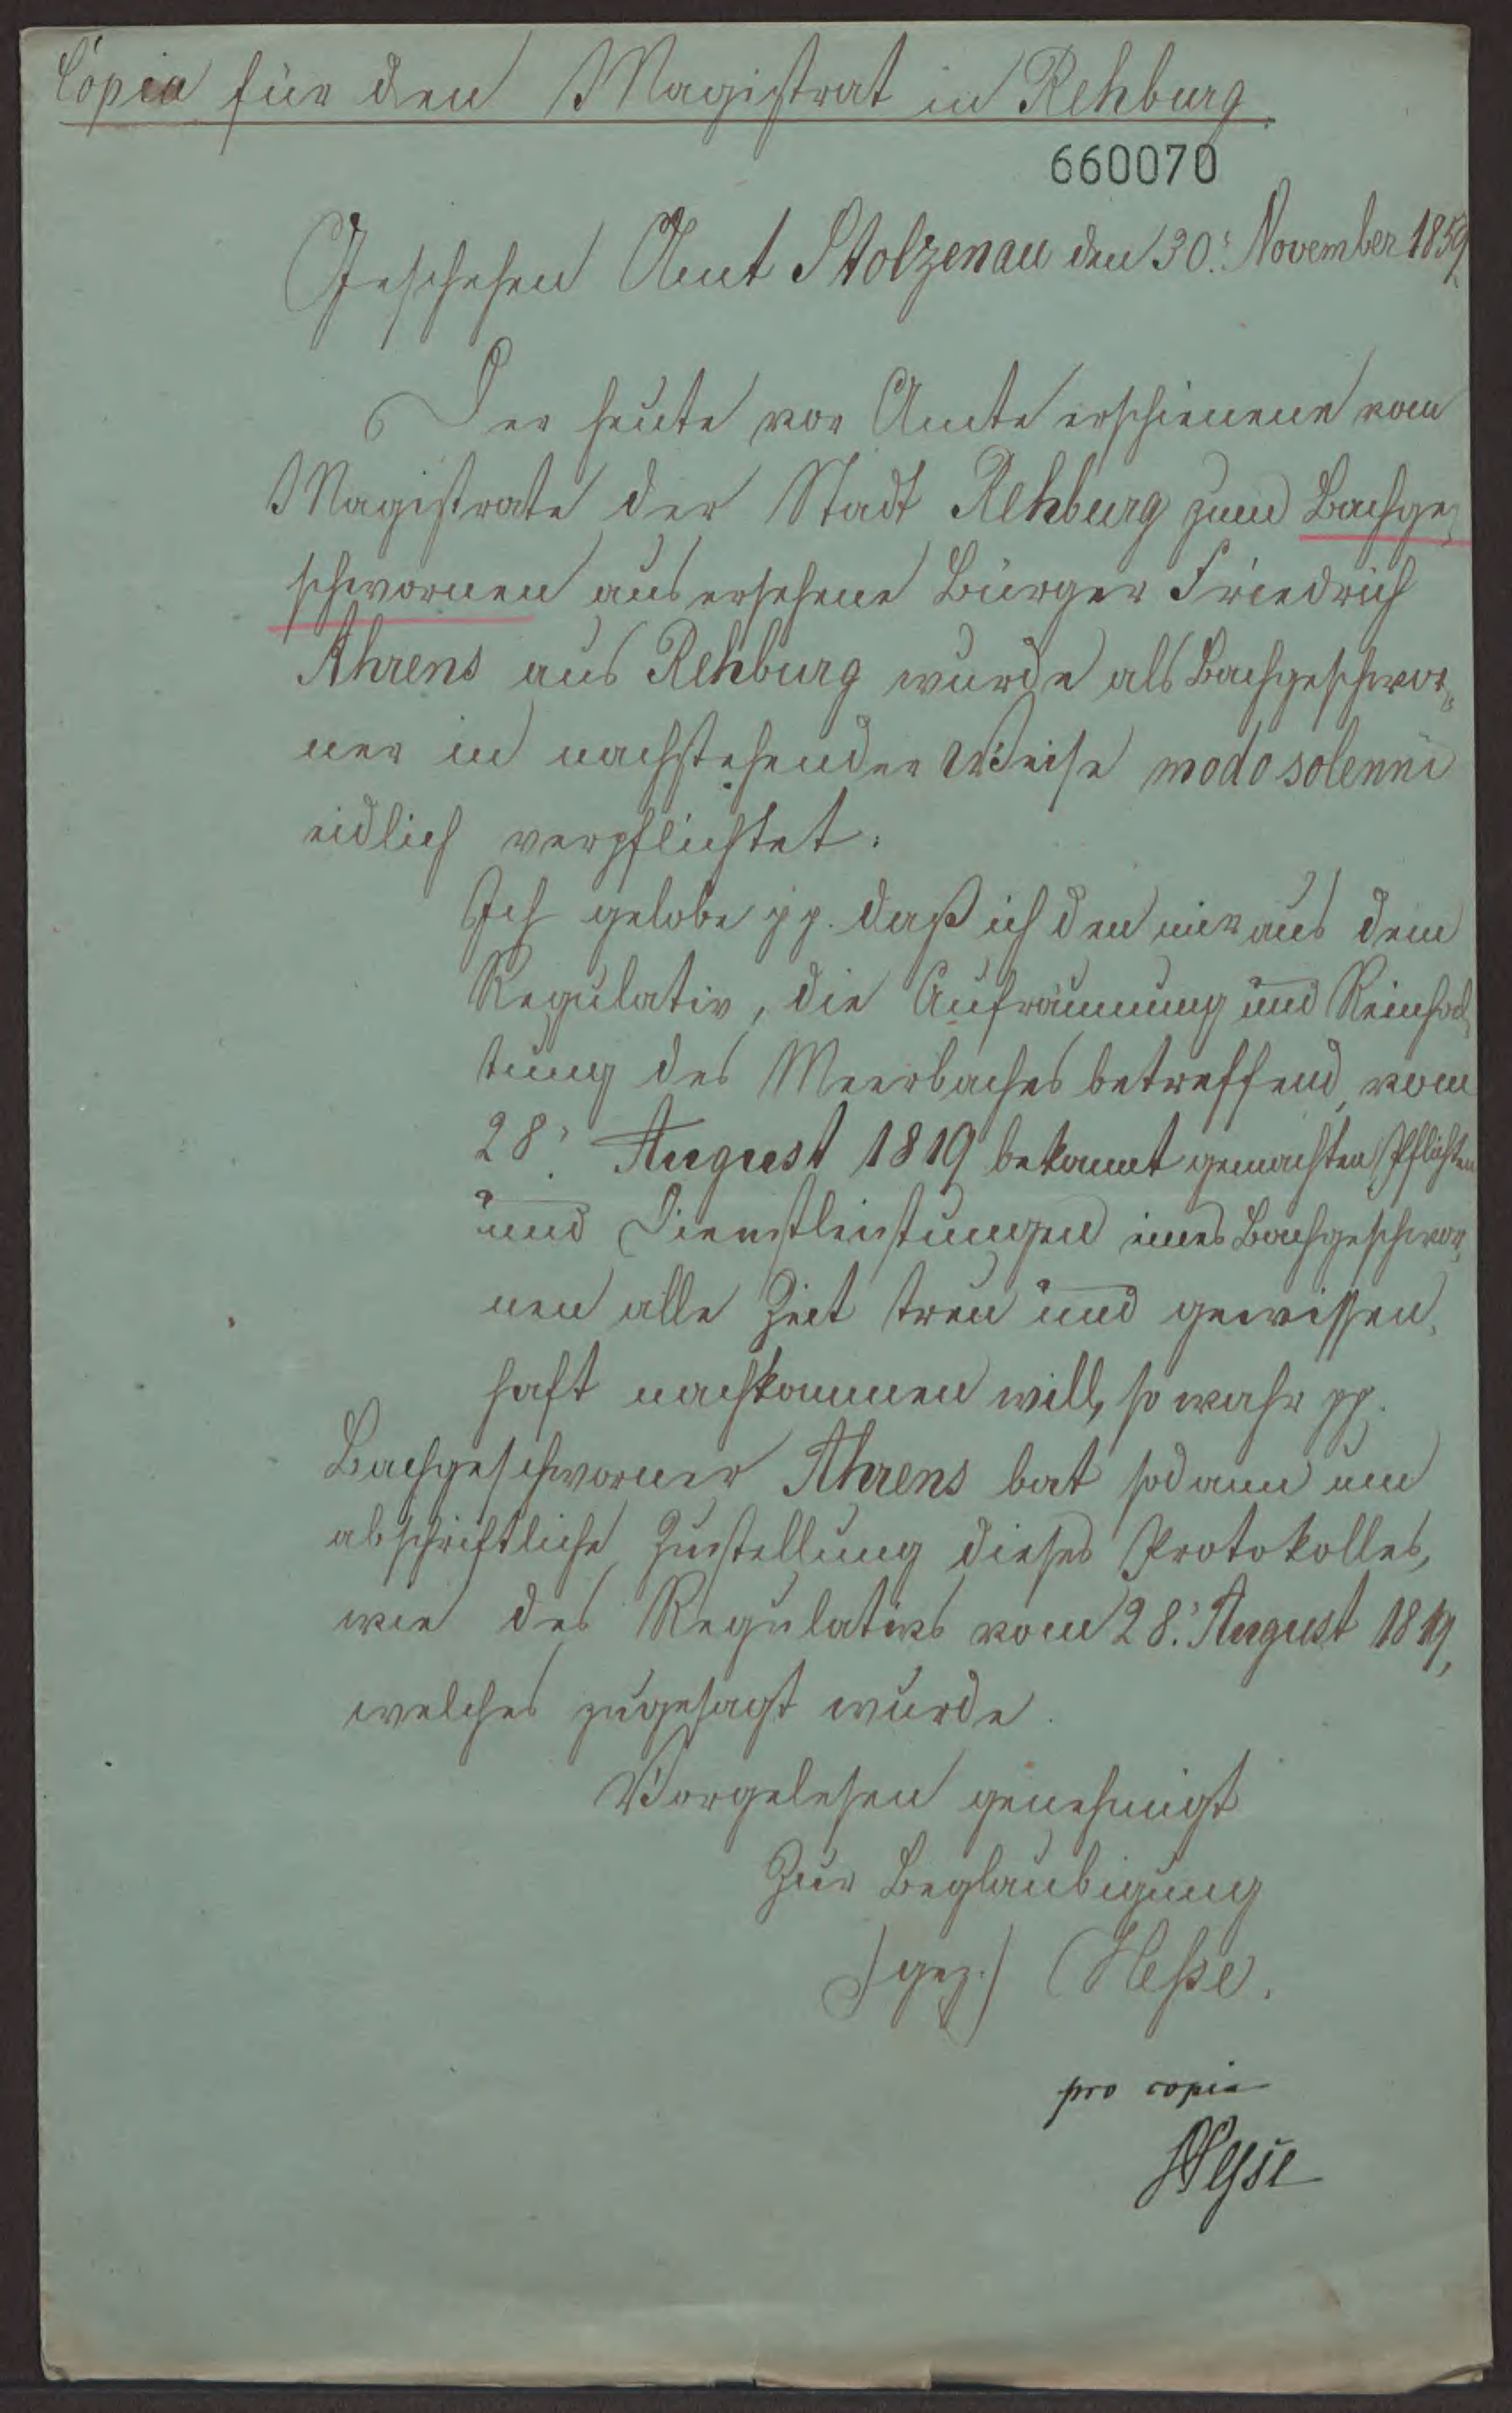 Copia für den Magistrat in Rehburg.
660070
Geschehen Amt Stolzenau den 30. November 1859.
Der heute vor Amte erschienene vom
Magistrate der Stadt Rehburg zum Bachge-
schwornen ausersehene Bürger Friedrich
Ahrens aus Rehburg wurde als Bachgeschwor-
ner in nachstehender Weise modo solenni
eidlich verpflichtet:
Ich gelobe pp. daß ich den mir aus dem
Regulativ, die Aufräumung und Reinhal-
tung des Meerbaches betreffend, vom
28. August 1819 bekannt gemachten Pflichten
und Dienstleistungen eines Bachgeschwor-
nen alle Zeit treu und gewissen-
haft nachkommen will, so wahr pp.
Bachgeschworner Ahrens bat sodann um
abschriftliche Zustellung dieses Protokolles,
wie des Regulativs vom 28. August 1819,
welches zugesagt wurde.
Vorgelesen genehmigt
Zur Beglaubigung
(gez.) Heße.
pro copia